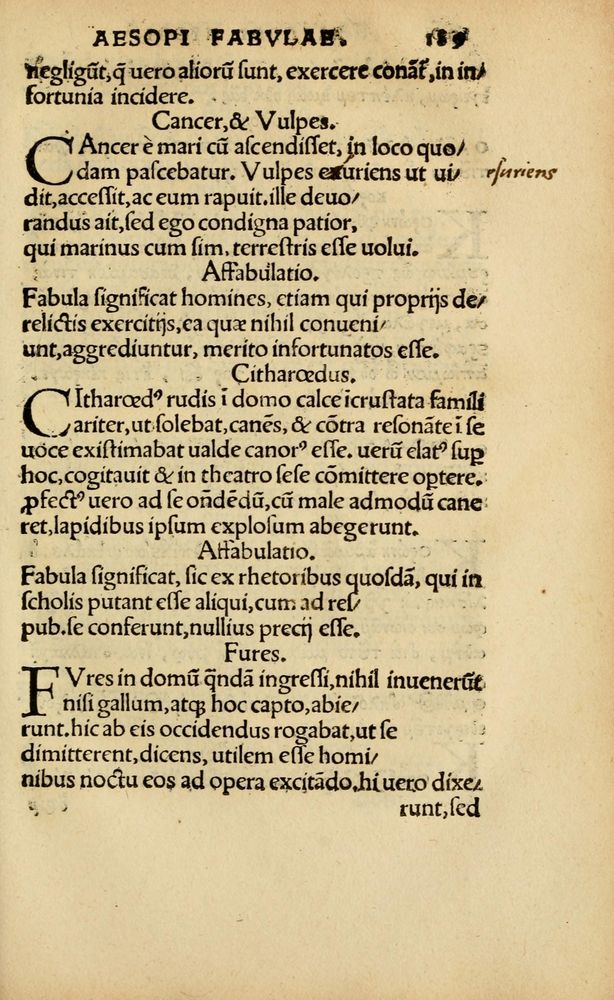 AESOPI FABVLAE. 189
negligūt, q̄ uero aliorū sunt, exercere conāt, in in/
fortunia incidere.
Cancer, & Vulpes.
CAncer è mari cū ascendisset, in loco quo/
dam pascebatur. Vulpes esuriens ut ui/ esuriens
dit, accessit, ac eum rapuit. ille deuo/
randus ait, sed ego condigna patior,
qui marinus cum sim, terrestris esse uolui.
Affabulatio.
Fabula significat homines, etiam qui proprijs de/
relictis exercitijs, ea quæ nihil conueni/
unt, aggrediuntur, merito infortunatos esse.
Citharœdus.
CItharœdꝰ rudis ī domo calce īcrustata famili
ariter, ut solebat, canēs, & cōtra resonāte ī se
uoce existimabat ualde canorꝰ esse. uerū elatꝰ suꝑ
hoc, cogitauit & in theatro sese cōmittere optere.
ꝓfectꝰ uero ad se ondēdū, cū male admodū cane
ret, lapidibus ipsum explosum abegerunt.
Affabulatio.
Fabula significat, sic ex rhetoribus quosdā, qui in
scholis putant esse aliqui, cum ad res/
pub. se conferunt, nullius precij esse.
Fures.
FVres in domū q̄ndā ingressi, nihil inuenerūt
nisi gallum, atqꝫ hoc capto, abie/
runt. hic ab eis occidendus rogabat, ut se
dimitterent, dicens, utilem esse homi/
nibus noctu eos ad opera excitādo. hi uero dixe/
runt, sed